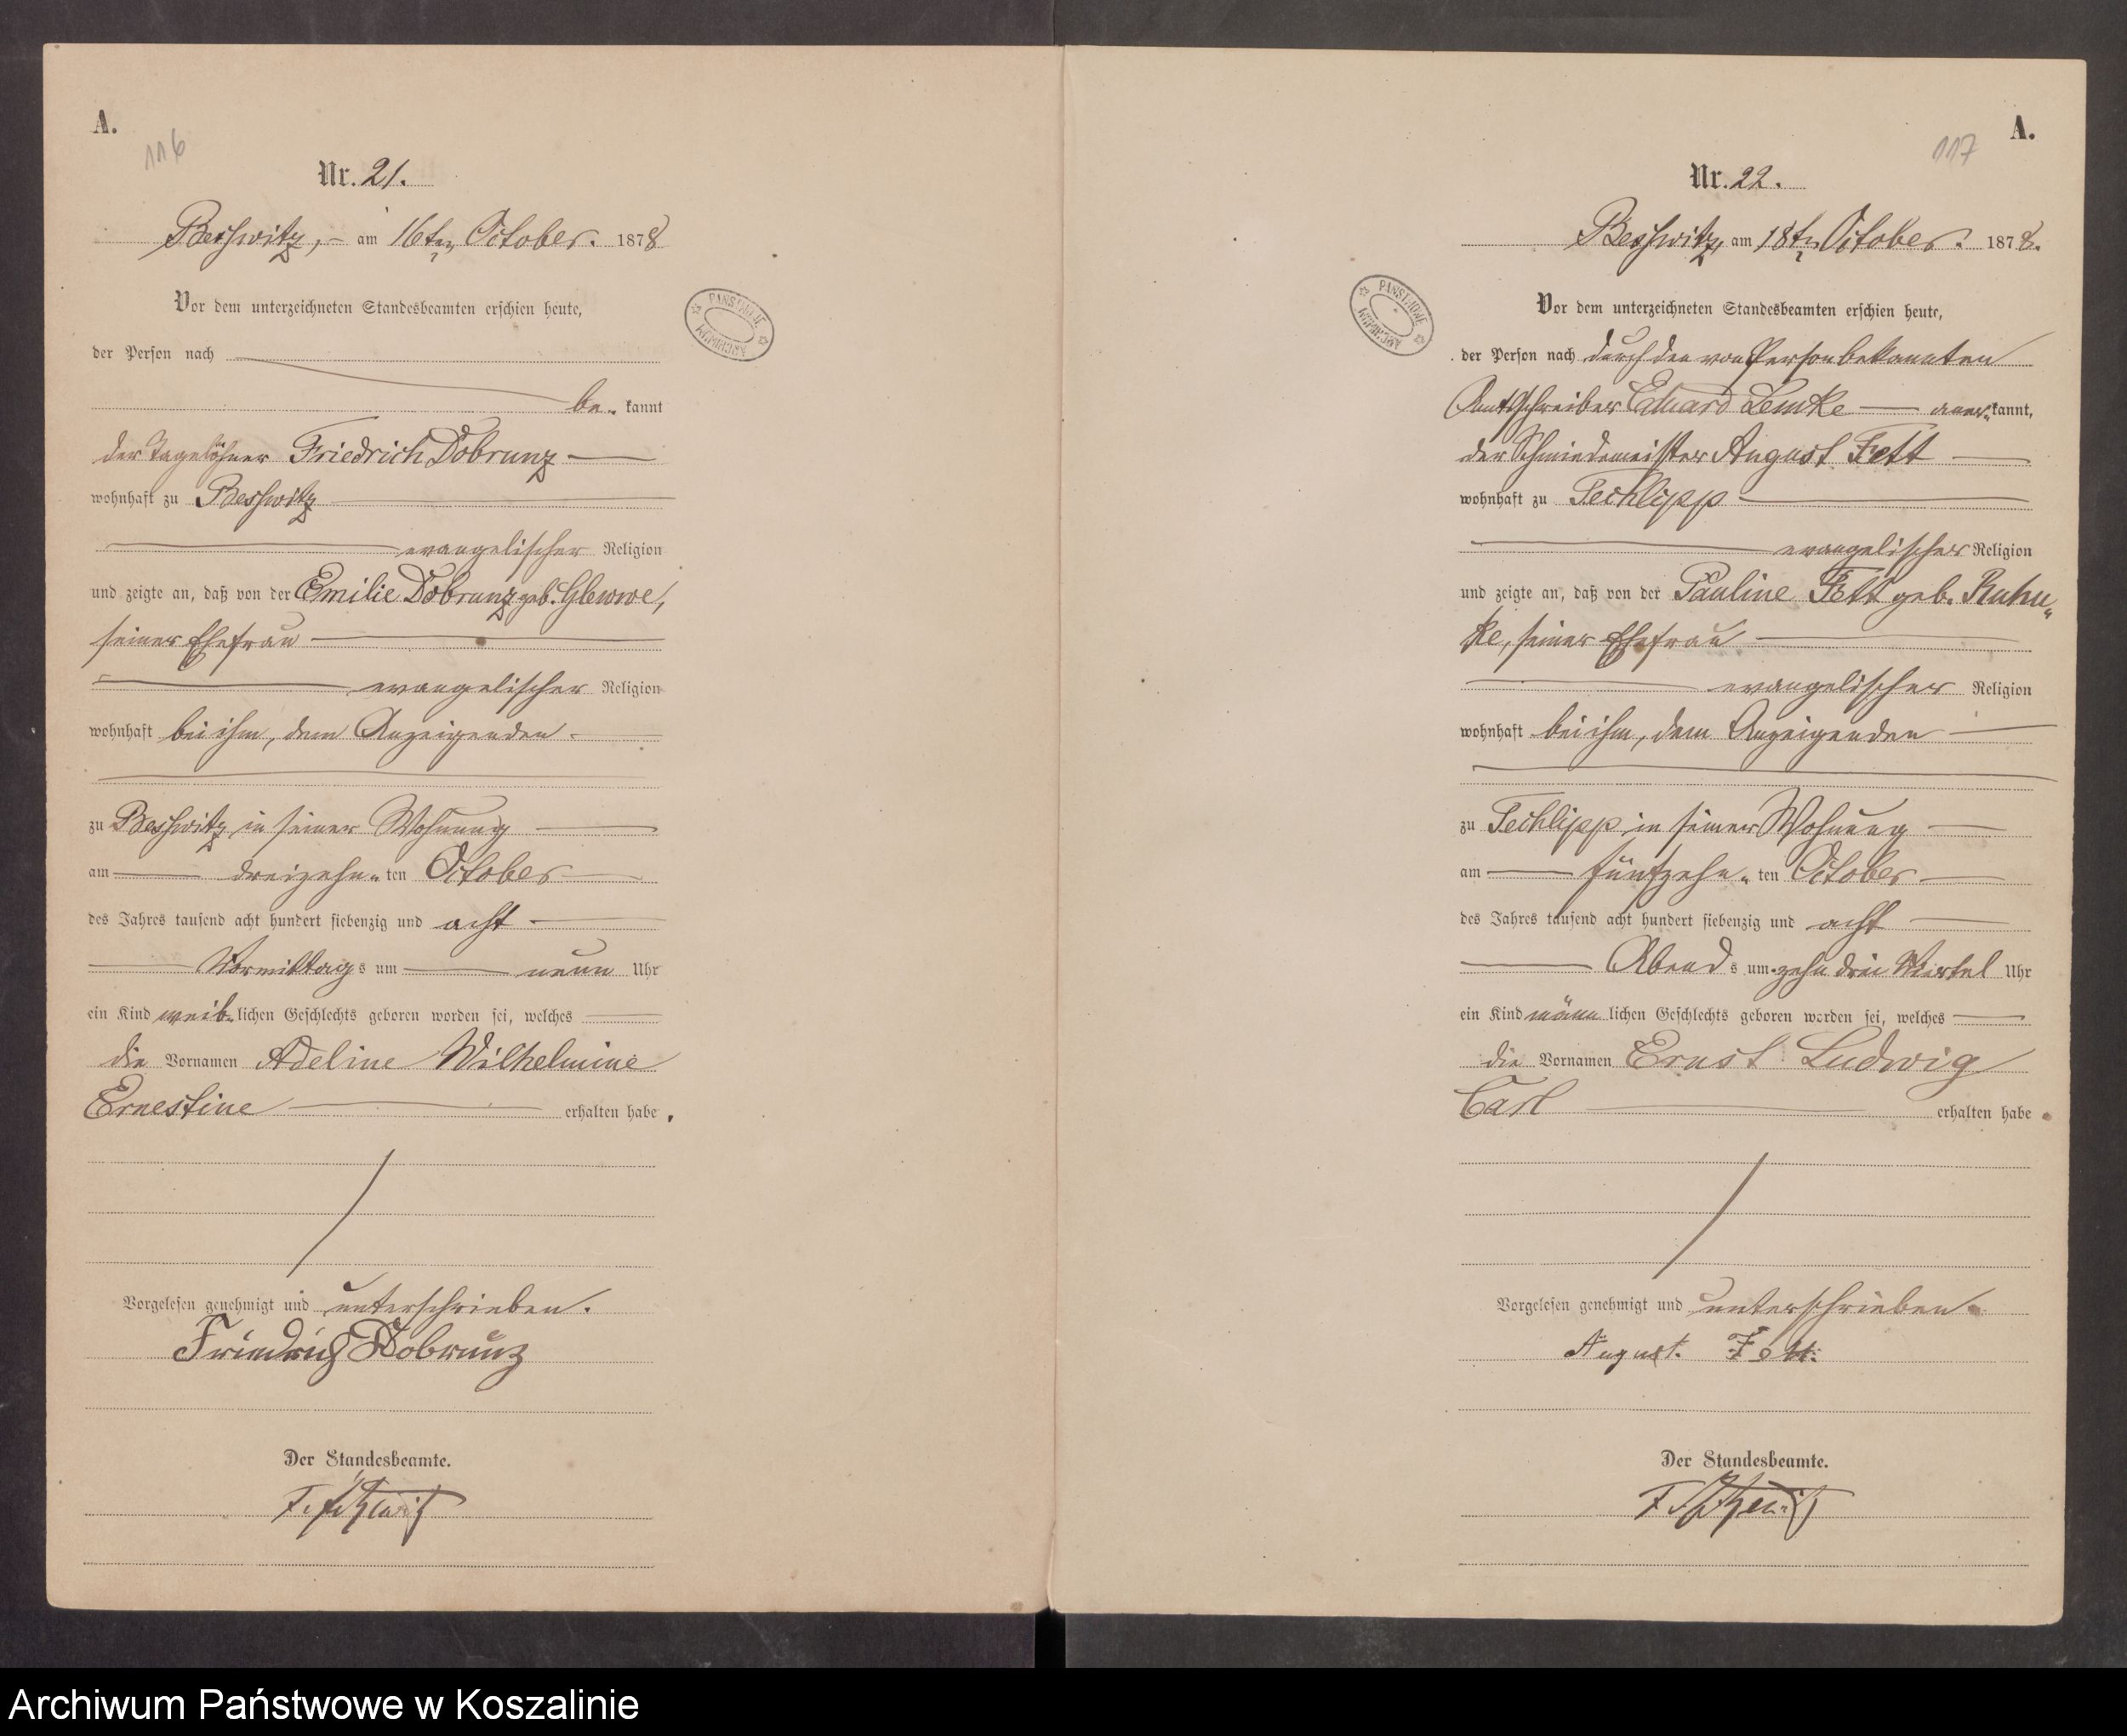 A.
116
Nr. 21.
Besswitz, am 16ten October. 1878
Vor dem unterzeichneten Standesbeamten erschien heute,
der Person nach
be- kannt
der Tagelöhner Friedrich Dobrunz
wohnhaft zu Besswitz
evangelischer Religion
und zeigte an, daß von der Emilie Dobrunz geb. Glewwe,
seiner Ehefrau
evangelischer Religion
wohnhaft bei ihm, dem Anzeigenden
zu Besswitz in seiner Wohnung
am dreizehn-ten October
des Jahres tausend acht hundert siebenzig und acht
Vormittags um neun Uhr
ein Kind weib-lichen Geschlechts geboren worden sei, welches
die Vornamen Adeline Wilhelmine
Ernestine erhalten habe.
Vorgelesen genehmigt und unterschrieben.
Friedrich Dobrunz
Der Standesbeamte.
PANSTWOWE ARCHIWUM
A.
117
Nr. 22.
Besswitz, am 18ten October. 1878.
Vor dem unterzeichneten Standesbeamten erschien heute,
der Person nach durch den von Person bekannten
Amtsschreiber Eduard Lemke anerkannt,
der Schmiedemeister August Fett
wohnhaft zu Techlipp
evangelischer Religion
und zeigte an, daß von der Pauline Fett geb. Ruhn-
ke, seiner Ehefrau
evangelischer Religion
wohnhaft bei ihm, dem Anzeigenden
zu Techlipp in seiner Wohnung
am fünfzehn-ten October
des Jahres tausend acht hundert siebenzig und acht
Abends um zehn drei Viertel Uhr
ein Kind männlichen Geschlechts geboren worden sei, welches
die Vornamen Ernst Ludwig
Carl erhalten habe
Vorgelesen genehmigt und unterschrieben.
August. Fett.
Der Standesbeamte.
PANSTWOWE ARCHIWUM
Archiwum Państwowe w Koszalinie